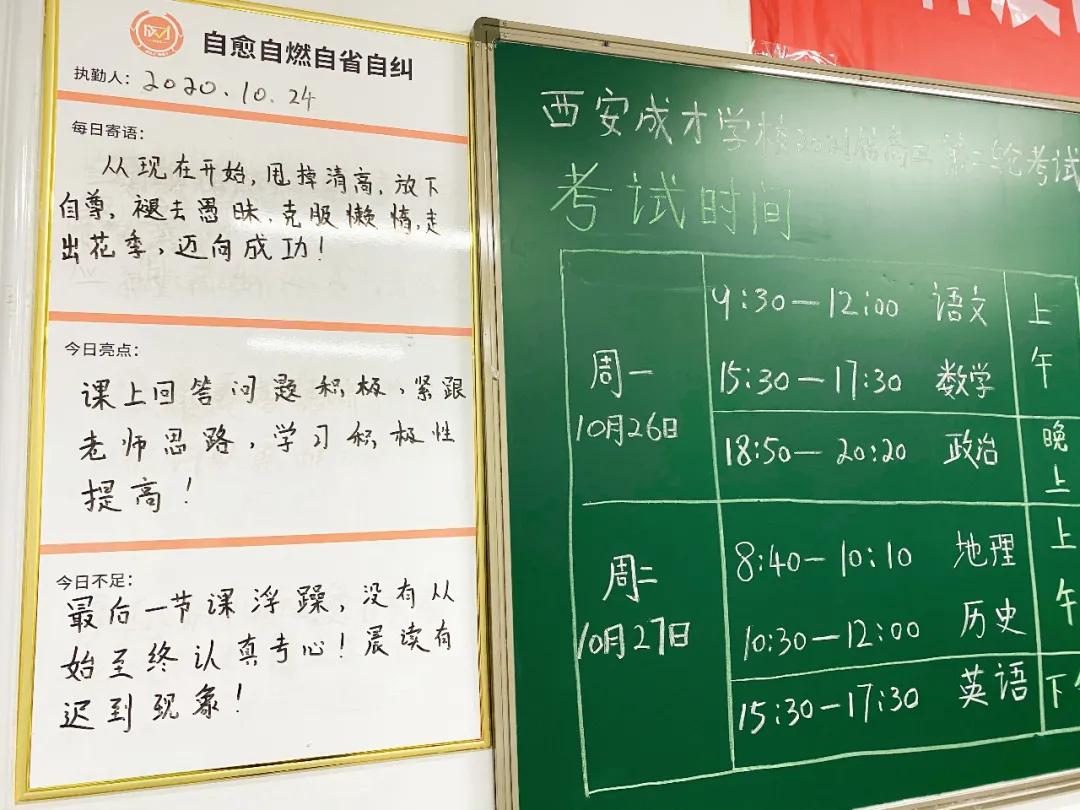 自愈自燃自省自纠
执勤人: 2020.10.24
每日寄语:
从现在开始,甩掉清高,放下
自尊,褪去愚昧,克服懒惰,走
出花季,迈向成功!
今日亮点:
课上回答问题积极、紧跟
老师思路,学习积极性
提高!
今日不足:
最后一节课浮躁,没有从
始至终认真专心!晨读有
迟到现象!
西安成才学校2021届高三第二轮考试
考试时间
周一
10月26日
9:30—12:00 语文
上午
15:30—17:30 数学
18:50—20:20 政治
晚上
周二
10月27日
8:40—10:10 地理
上午
10:30—12:00 历史
15:30—17:30 英语
下